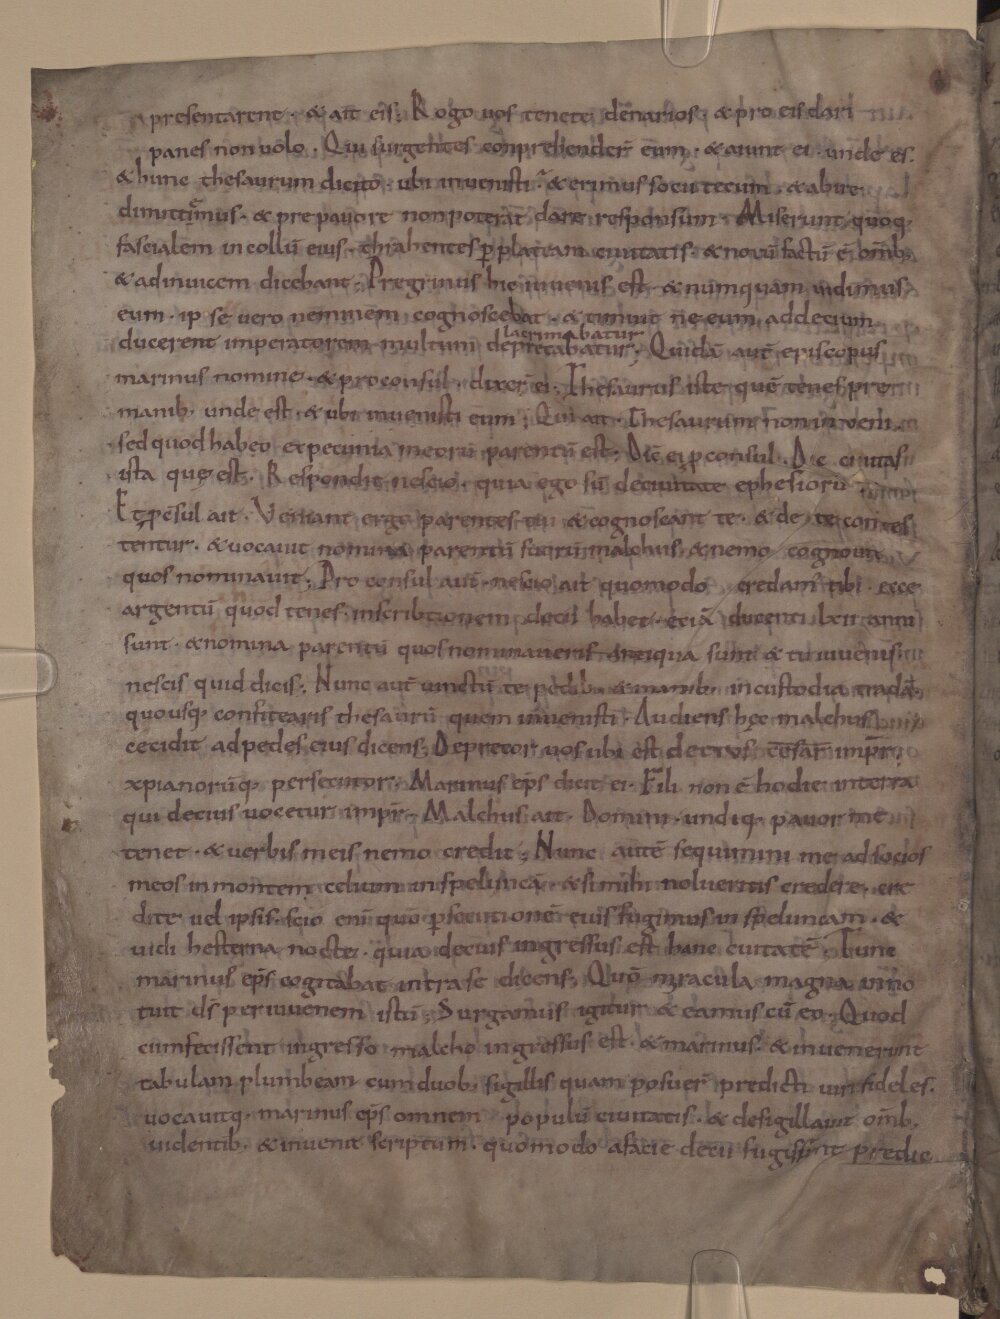 presentarent · & ait eis; Rogo vos tenete denarios · & pro eis dari
panes non uolo · Qui surgentes conprehender̄ eum · & aiunt ei · unde es·
& hunc thesaurum dicito · ubi inuenisti · & erimus socii tecum · & abire
dimittimus · & pre pauore non poterat dare responsum · Miserunt quoq·
fascialem in collū eius · thrahentes p̱ plateam ciuitatis · & notū factū ē om̄b;
& adinuicem dicebant; Peregrinus hic iuuenis est · & numquam uidimus
eum · ipse vero neminem cognoscebat · & timuit ne eum ad decium
lacrimabatur
ducerent imperatorem multum deprecabatur; Quidā aut̄ episcopus
marinus nomine · & proconsul · dixer̄ ei · Thesaurus iste quē tenes pre
manib· unde est · & ubi inuenisti eum; Qui ait · Thesaurum non inveni ·
sed quod habeo ex pecunia meorū parentū est; Dic̄ ei p̱consul · De ciuitas
ista quę est · Respondit nescio · quia ego sū de ciuitate ephesiorū
Et p̱cōsul ait · Veniant ergo parentes tui & cognoscant te · & de te contes
tentur · & uocauit nomina parentū suorū malchus · & nemo cognouit
quos nominauit; Pro consul aut̄ · nescio ait quomodo credam tibi · ecce
argentū quod tenes · inscribtionem decii habet · etiā ducenti lxii anni
sunt · & nomina parentū quos nominaueris antiqua sunt & tu iuuenis
nescis quid dicis; Nunc aut̄ uinctū te pedib· & manib· in custodia tradā
quousq· confitearis thesaurū quem inuenisti · Audiens hęc malchus
cecidit ad pedes eius dicens; Deprecor uos ubi est decius cēsar̄ imp̄r
xpianorūq· persecutor; Marinus ep̄s dicit ei · Fili non ē hodie in terra
qui decius vocetur imp̄r; Malchus ait · Domini · undiq· pauor me
tenet · & verbis meis nemo credit; Nunc autē sequimini me ad socios
meos in montem celium in speluncā · & si mihi nolueritis credere · cre
dite vel ipsis · scio eni quō p̱secutionē eius fugimus in speluncam · &
uidi hesterna nocte · quia decius ingressus est hanc ciuitatē · Tunc
marinus ep̄s cogitabat intra se dicens; Quō miracula magna
tuit d̄s per iuuenem istū; Surgamus igitur & eamus cū eo · Quod
cumfecissent ingresso malcho ingressus est · & marinus · & inuenerunt
tabulam plumbeam cum duob· sigillis quam posuer̄ predicti uiri fideles ·
uocauitq· marinus ep̄s omnem populū ciuitatis · & desigillauit om̄b·
uidentib· & inuenit scriptum · quomodo a facie decii fugissent predic